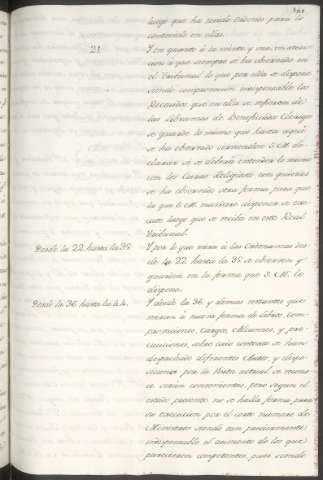 luego que ha tenido ordenes para lo
contenido en ellas.
21 Y en quanto á la veinte y una, en aten-
cion á que siempre se ha observado en
el Tribunal lo que por ella se dispone
siendo indispensable los
Recados que en ella se refieren de
las Libranzas de Beneficiados Clerigos
se guarde lo mismo que hasta aquí
se ha observado sirviendose S. M. de-
clarar si se deberá entender lo mismo
con las Casas Religiosas con quienes
se ha observado otra forma para que
lo que S. M. mandare disponer se exe-
cute luego que se reciba en este Real
Tribunal.
Desde la 22. hasta la 35. Y por lo que mira á las Ordenanzas des-
de la 22 hasta la 35 se observen y
guarden en la forma que S. M. lo
dispone.
Desde la 36. hasta la 44. Y desde la 36. y demas restantes que
miran á nueva forma de Libros, Com-
partimiento, Cargos, Alcances, y pre-
venciones, sobre cuio contexto se han
despachado diferentes Autos, y dispo-
siciones por la Visita actual se recono-
ce serian convenientes, pero segun el
estado presente no se halla forma para
su execucion por el corto numero de
Ministros siendo tan precisamente
indispensable el aumento de los que
parecieren competentes pues siendo